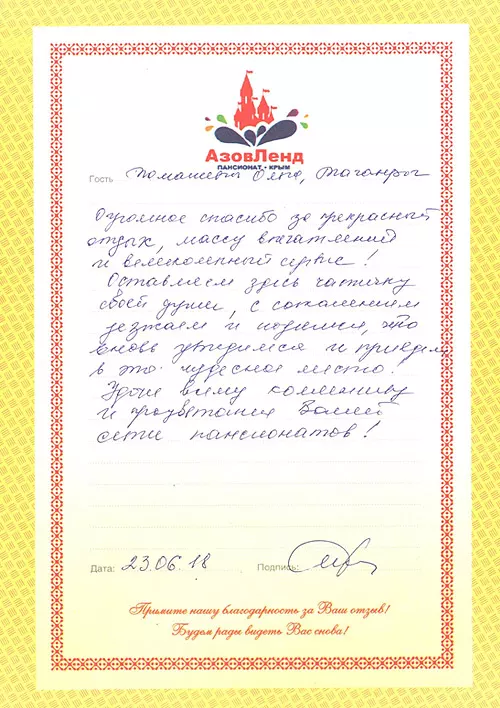 АзовЛенд
ПАНСИОНАТ • КРЫМ
Гость Ольга, Таганрог
Огромное спасибо за прекрасный
отдых, массу впечатлений
и великолепный сервис!
Оставляем здесь частичку
своей души, с сожалением
уезжаем и надеемся, что
вновь увидимся и приедем
в это чудесное место!
Удачи всему коллективу
и процветания Вашей
сети пансионатов!
Дата: 23.06.18 Подпись:
Примите нашу благодарность за Ваш отзыв!
Будем рады видеть Вас снова!